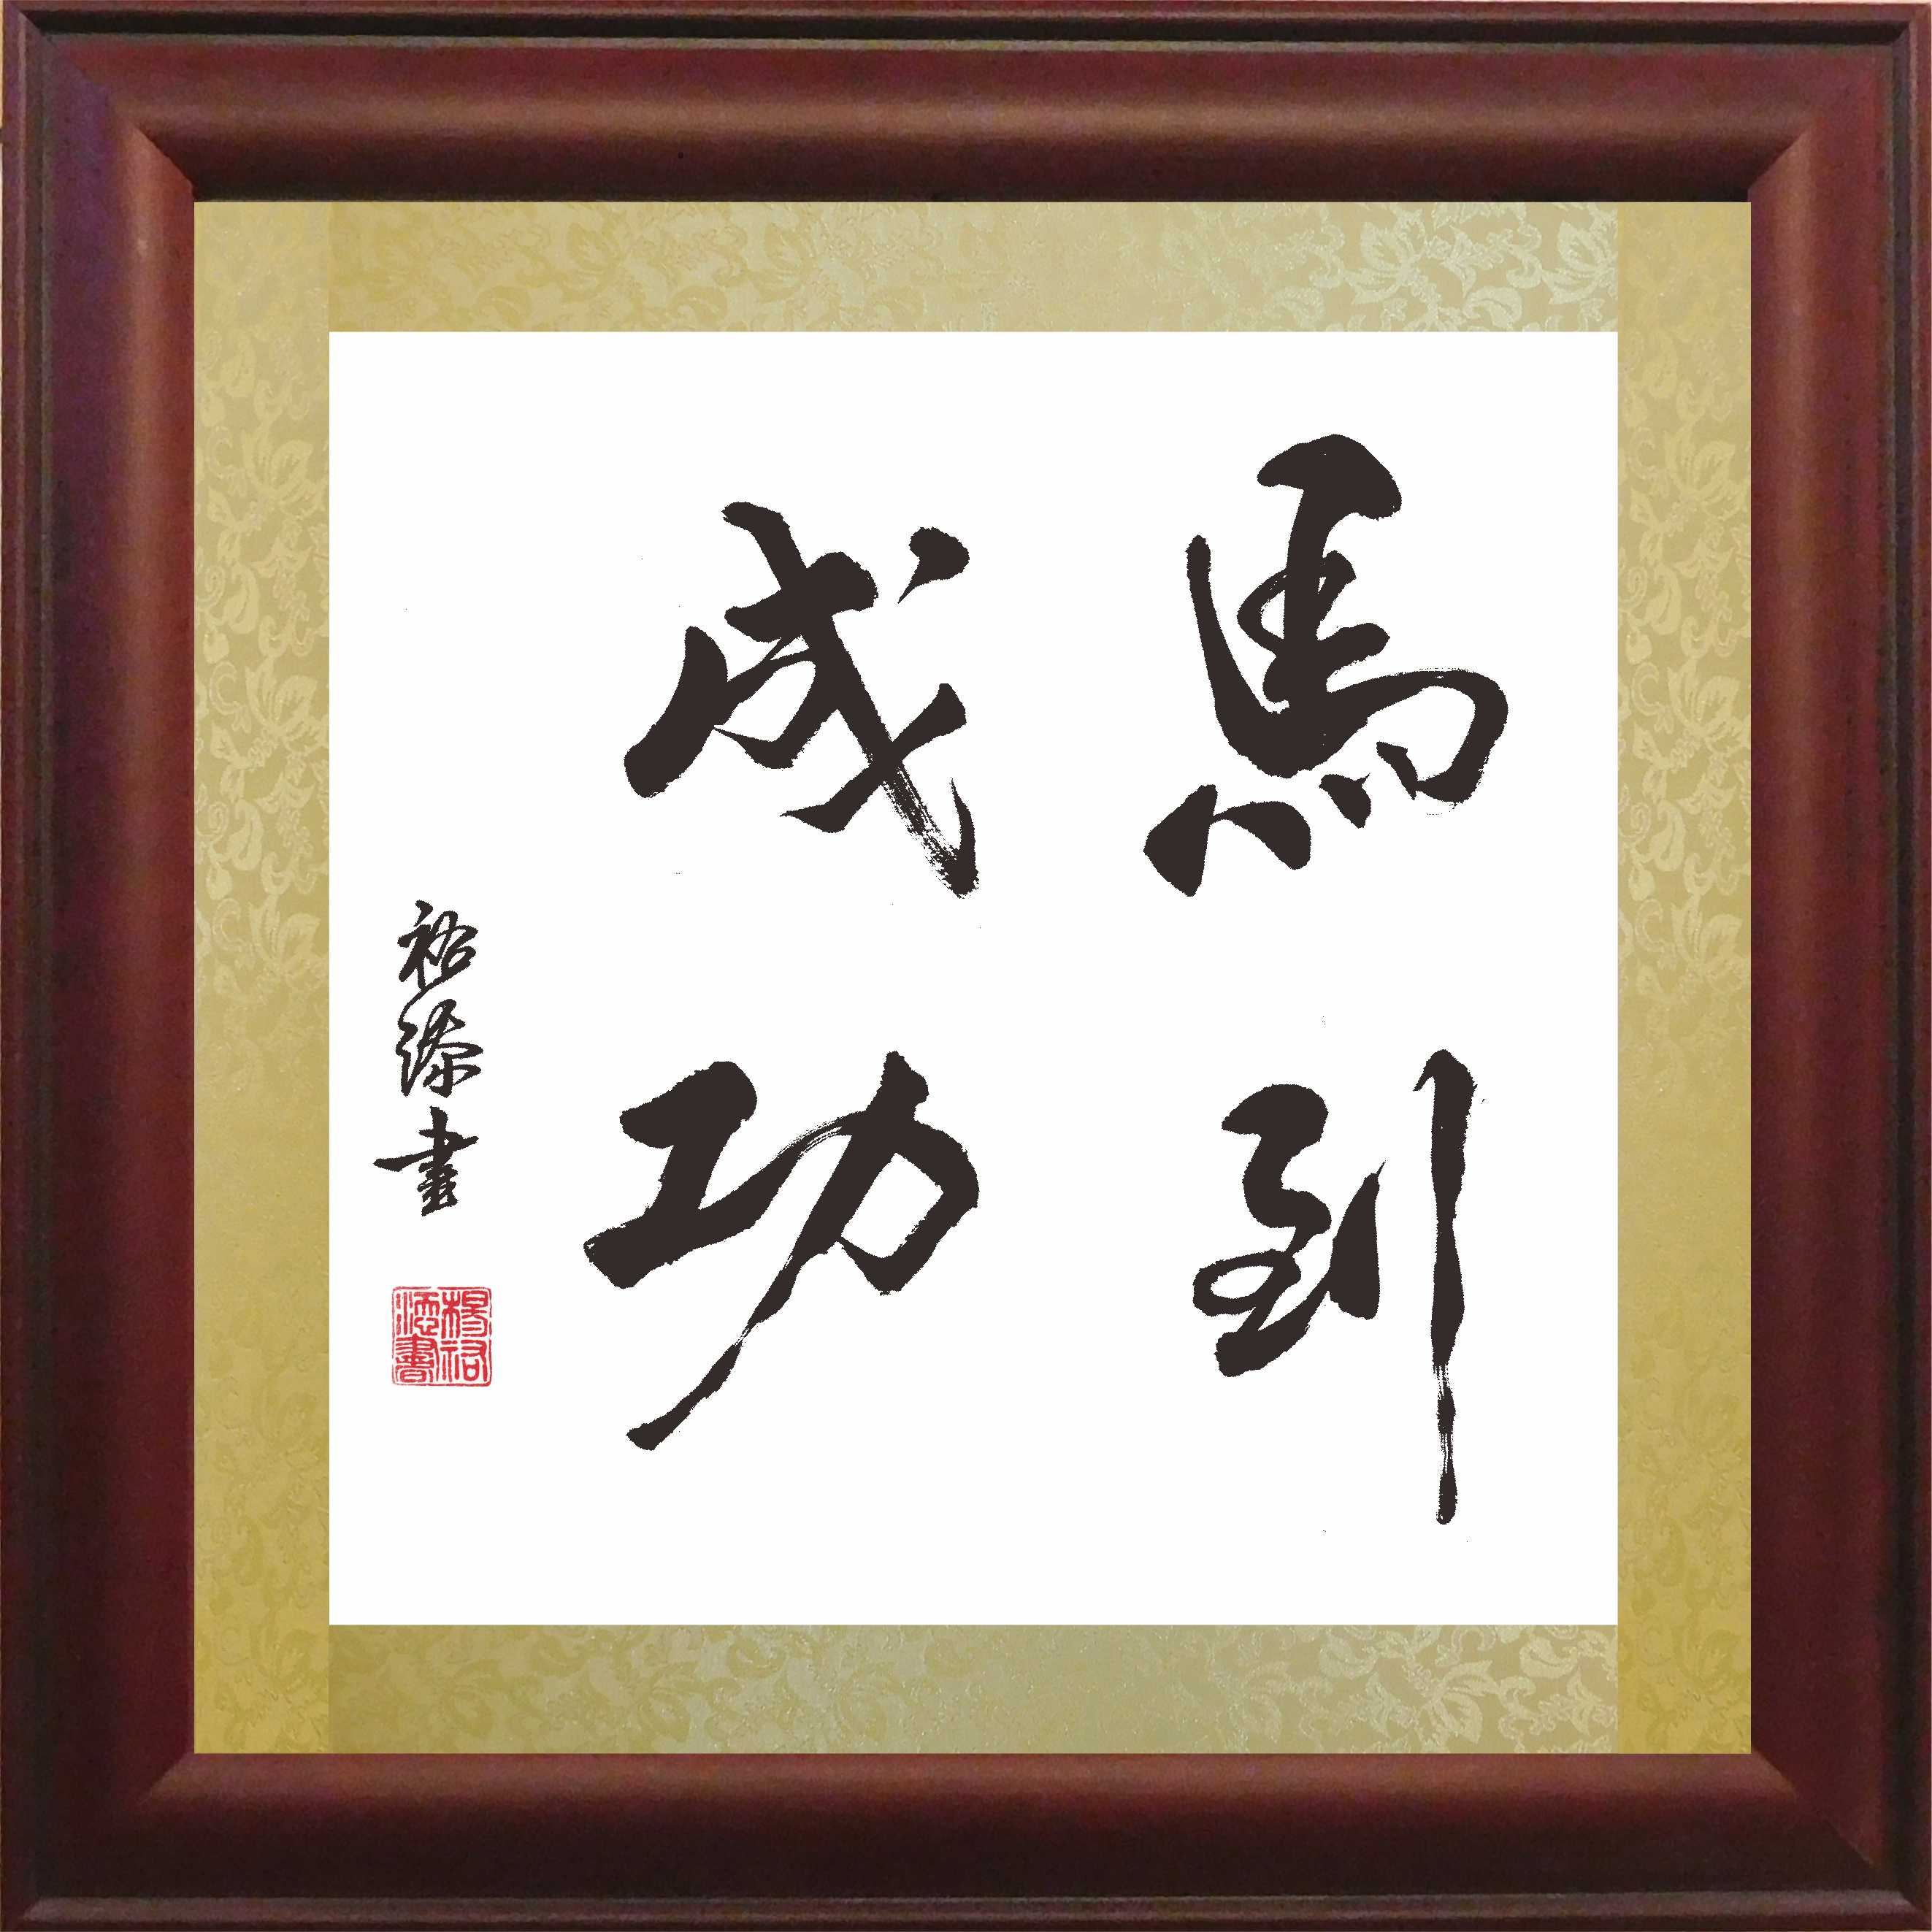 馬到
成功
裕添書
楊裕添書